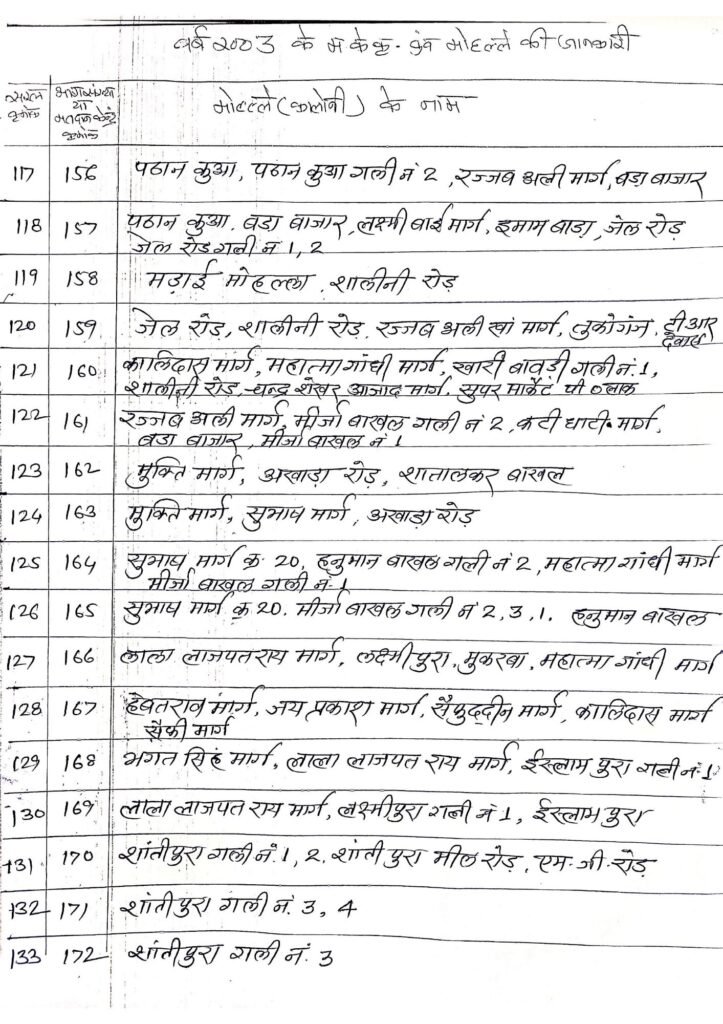 वर्ष 2003 के म.के.क्र. एवं मोहल्ले की जानकारी
सरल क्रमांक
भागसंख्या या मतदान केन्द्र क्रमांक
मोहल्ले (कालोनी) के नाम
117 156 पठान कुआ, पठान कुआ गली नं 2, रज्जब अली मार्ग, बडा बाजार
118 157 पठान कुआ, बडा बाजार, लक्ष्मी बाई मार्ग, इमाम बाडा, जेल रोड़
जेल रोड गली नं 1, 2
119 158 मड़ाई मोहल्ला, शालीनी रोड़
120 159 जेल रोड़, शालीनी रोड़, रज्जब अली खां मार्ग, तुकोगंज, टी आर
देवास
121 160 कालिदास मार्ग, महात्मा गांधी मार्ग, खारी बावड़ी गली नं. 1,
शालीनी रोड़, चन्द्र शेखर आजाद मार्ग, सुपर मार्केट पी ब्लाक
122 161 रज्जब अली मार्ग, मीर्जा बाखल गली नं 2, कटी घाटी मार्ग,
बडा बाजार, मीर्जा बाखल नं 1
123 162 मुक्ति मार्ग, अखाड़ा रोड़, शातालकर बाखल
124 163 मुक्ति मार्ग, सुभाष मार्ग, अखाड़ा रोड़
125 164 सुभाष मार्ग क्र. 20, हनुमान बाखल गली नं 2, महात्मा गांधी मार्ग
मीर्जा बाखल गली नं. 1
126 165 सुभाष मार्ग क्र 20. मीर्जा बाखल गली नं 2, 3, 1, हनुमान बाखल
127 166 लाला लाजपत राय मार्ग, लक्ष्मीपुरा, मुकरबा, महात्मा गांधी मार्ग
128 167 हैबतराव मार्ग, जय प्रकाश मार्ग, सैफुद्दीन मार्ग, कालिदास मार्ग
सैफी मार्ग
129 168 भगत सिंह मार्ग, लाला लाजपत राय मार्ग, ईस्लाम पुरा गली नं. 1
130 169 लाला लाजपत राय मार्ग, लक्ष्मीपुरा गली नं 1, ईस्लाम पुरा
131 170 शांतीपुरा गली नं. 1, 2, शांती पुरा मील रोड़, एम. जी. रोड़
132 171 शांतीपुरा गली नं. 3, 4
133 172 शांतीपुरा गली नं. 3